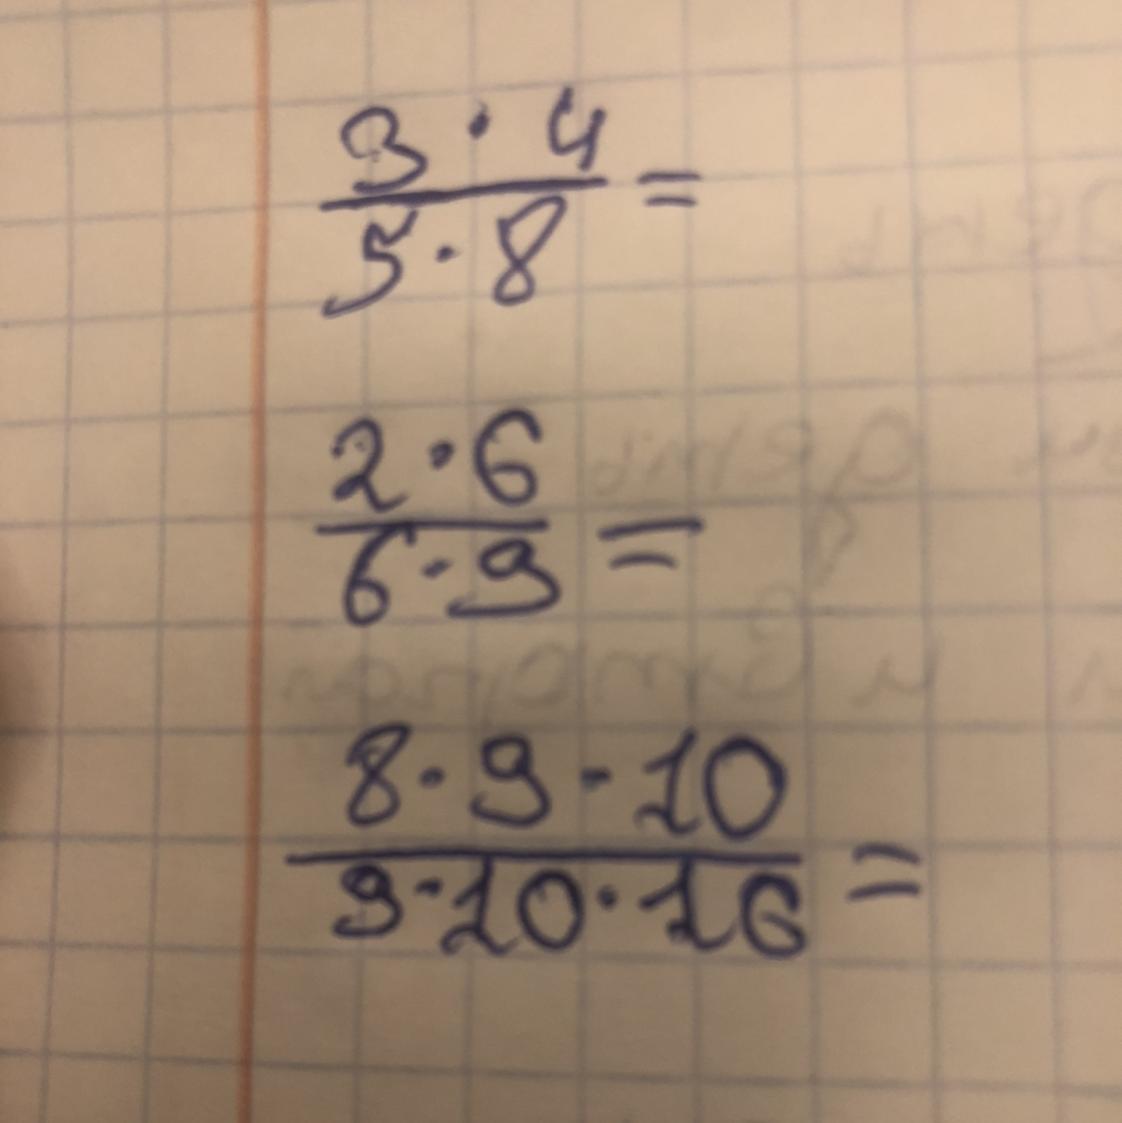 3 · 4
5 · 8 =
2 · 6
6 · 9 =
8 · 9 · 10
9 · 10 · 16 =